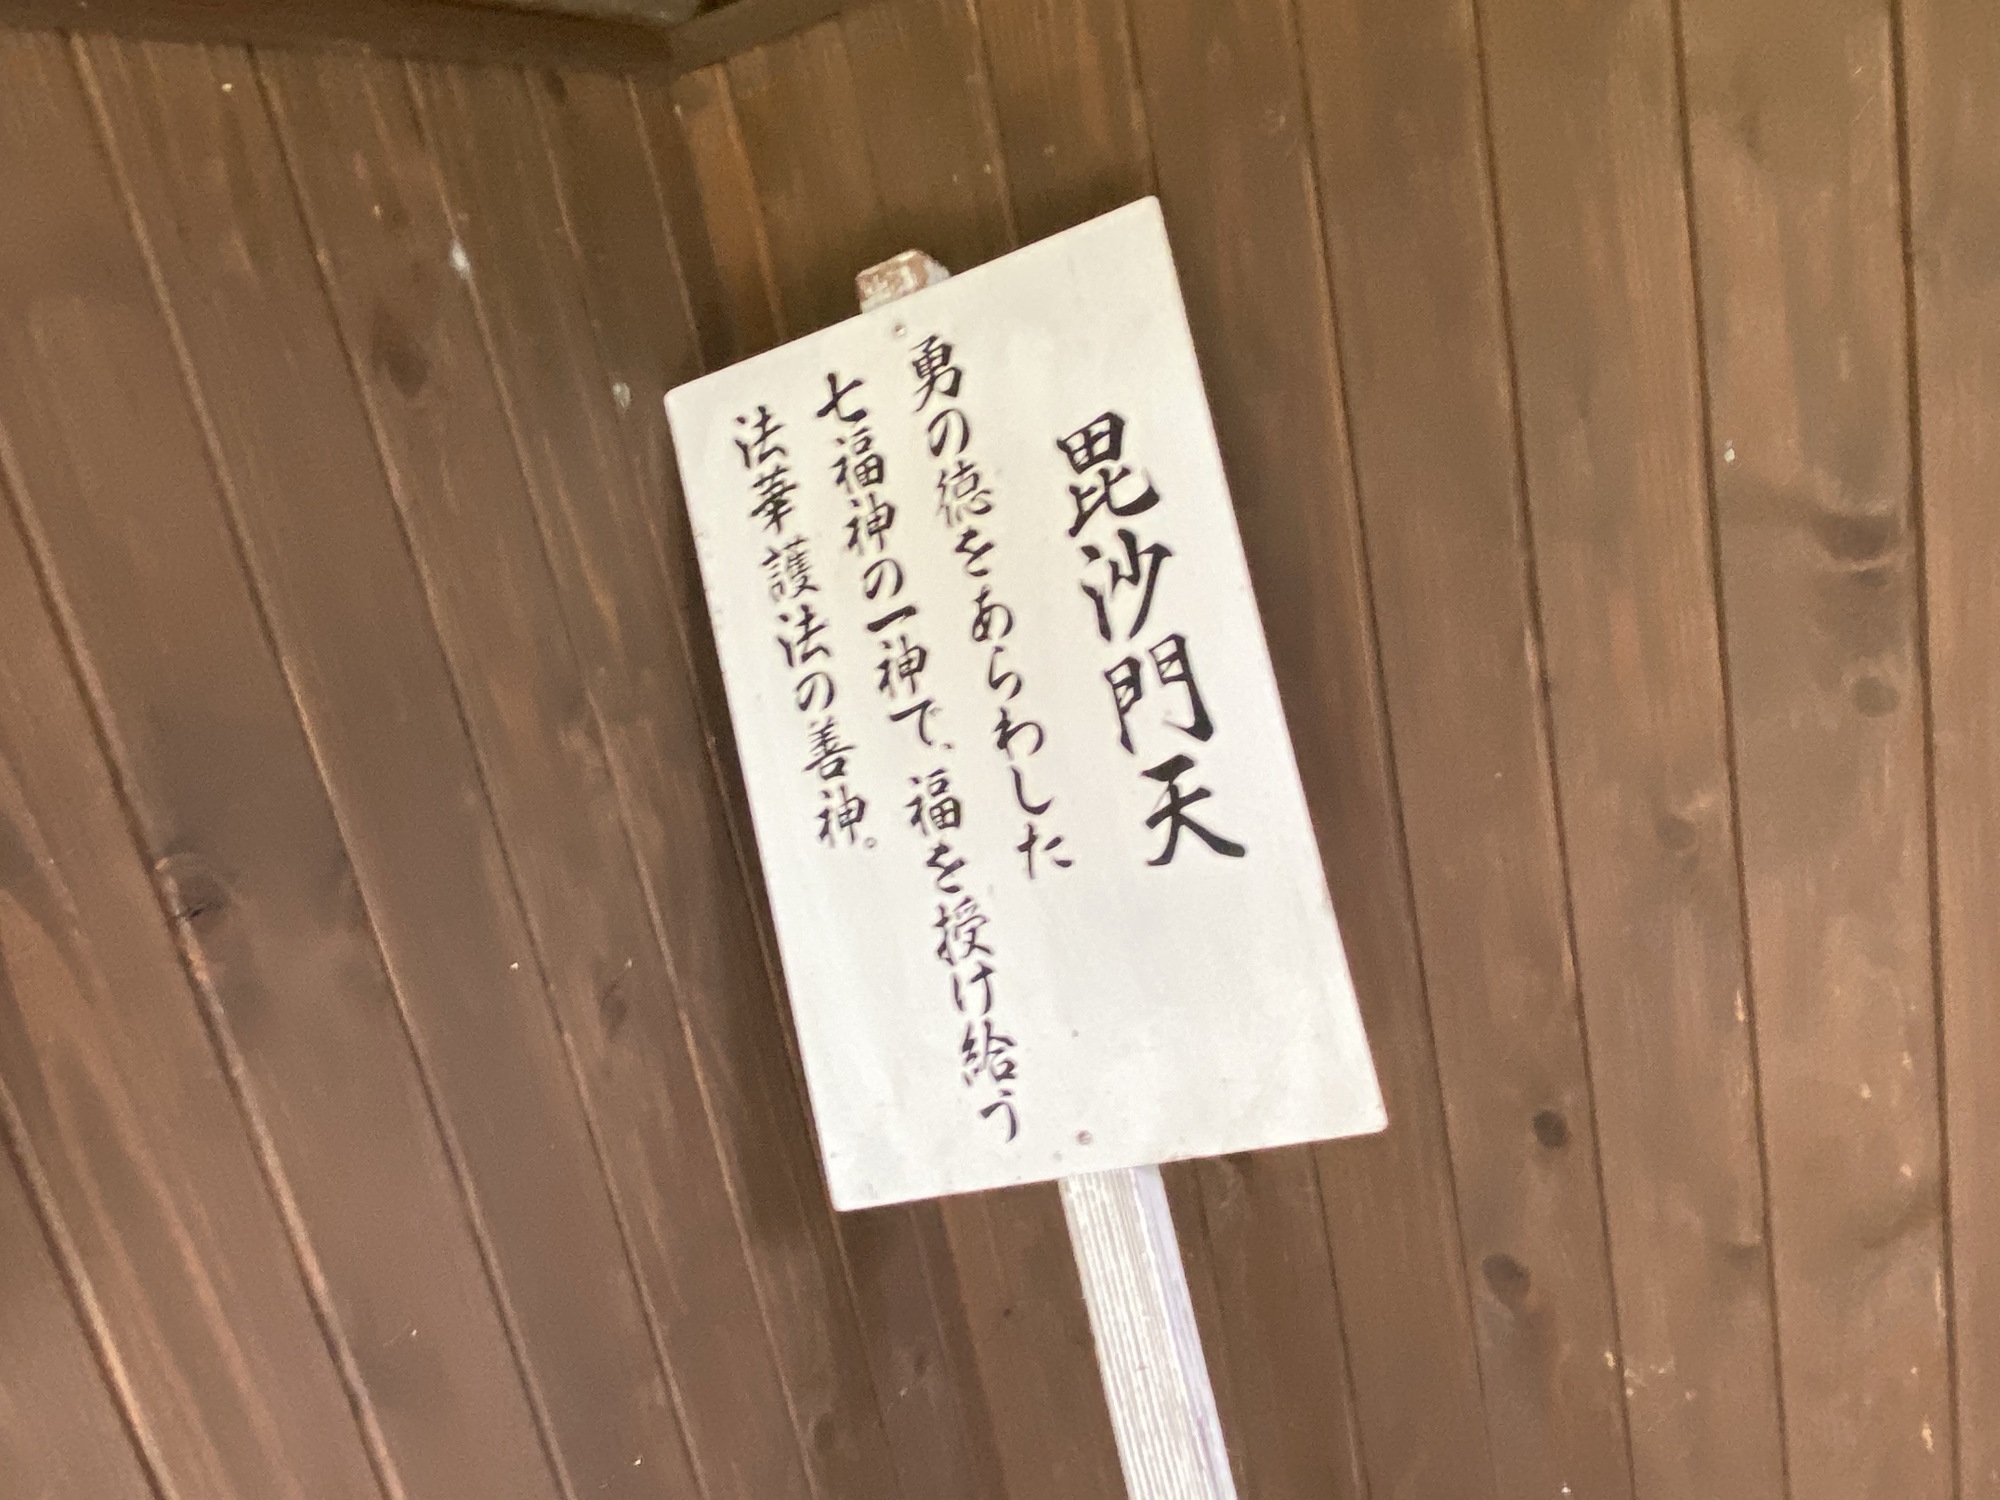 毘沙門天
勇の徳をあらわした
七福神の一神で、福を授け給う
法華護法の善神。